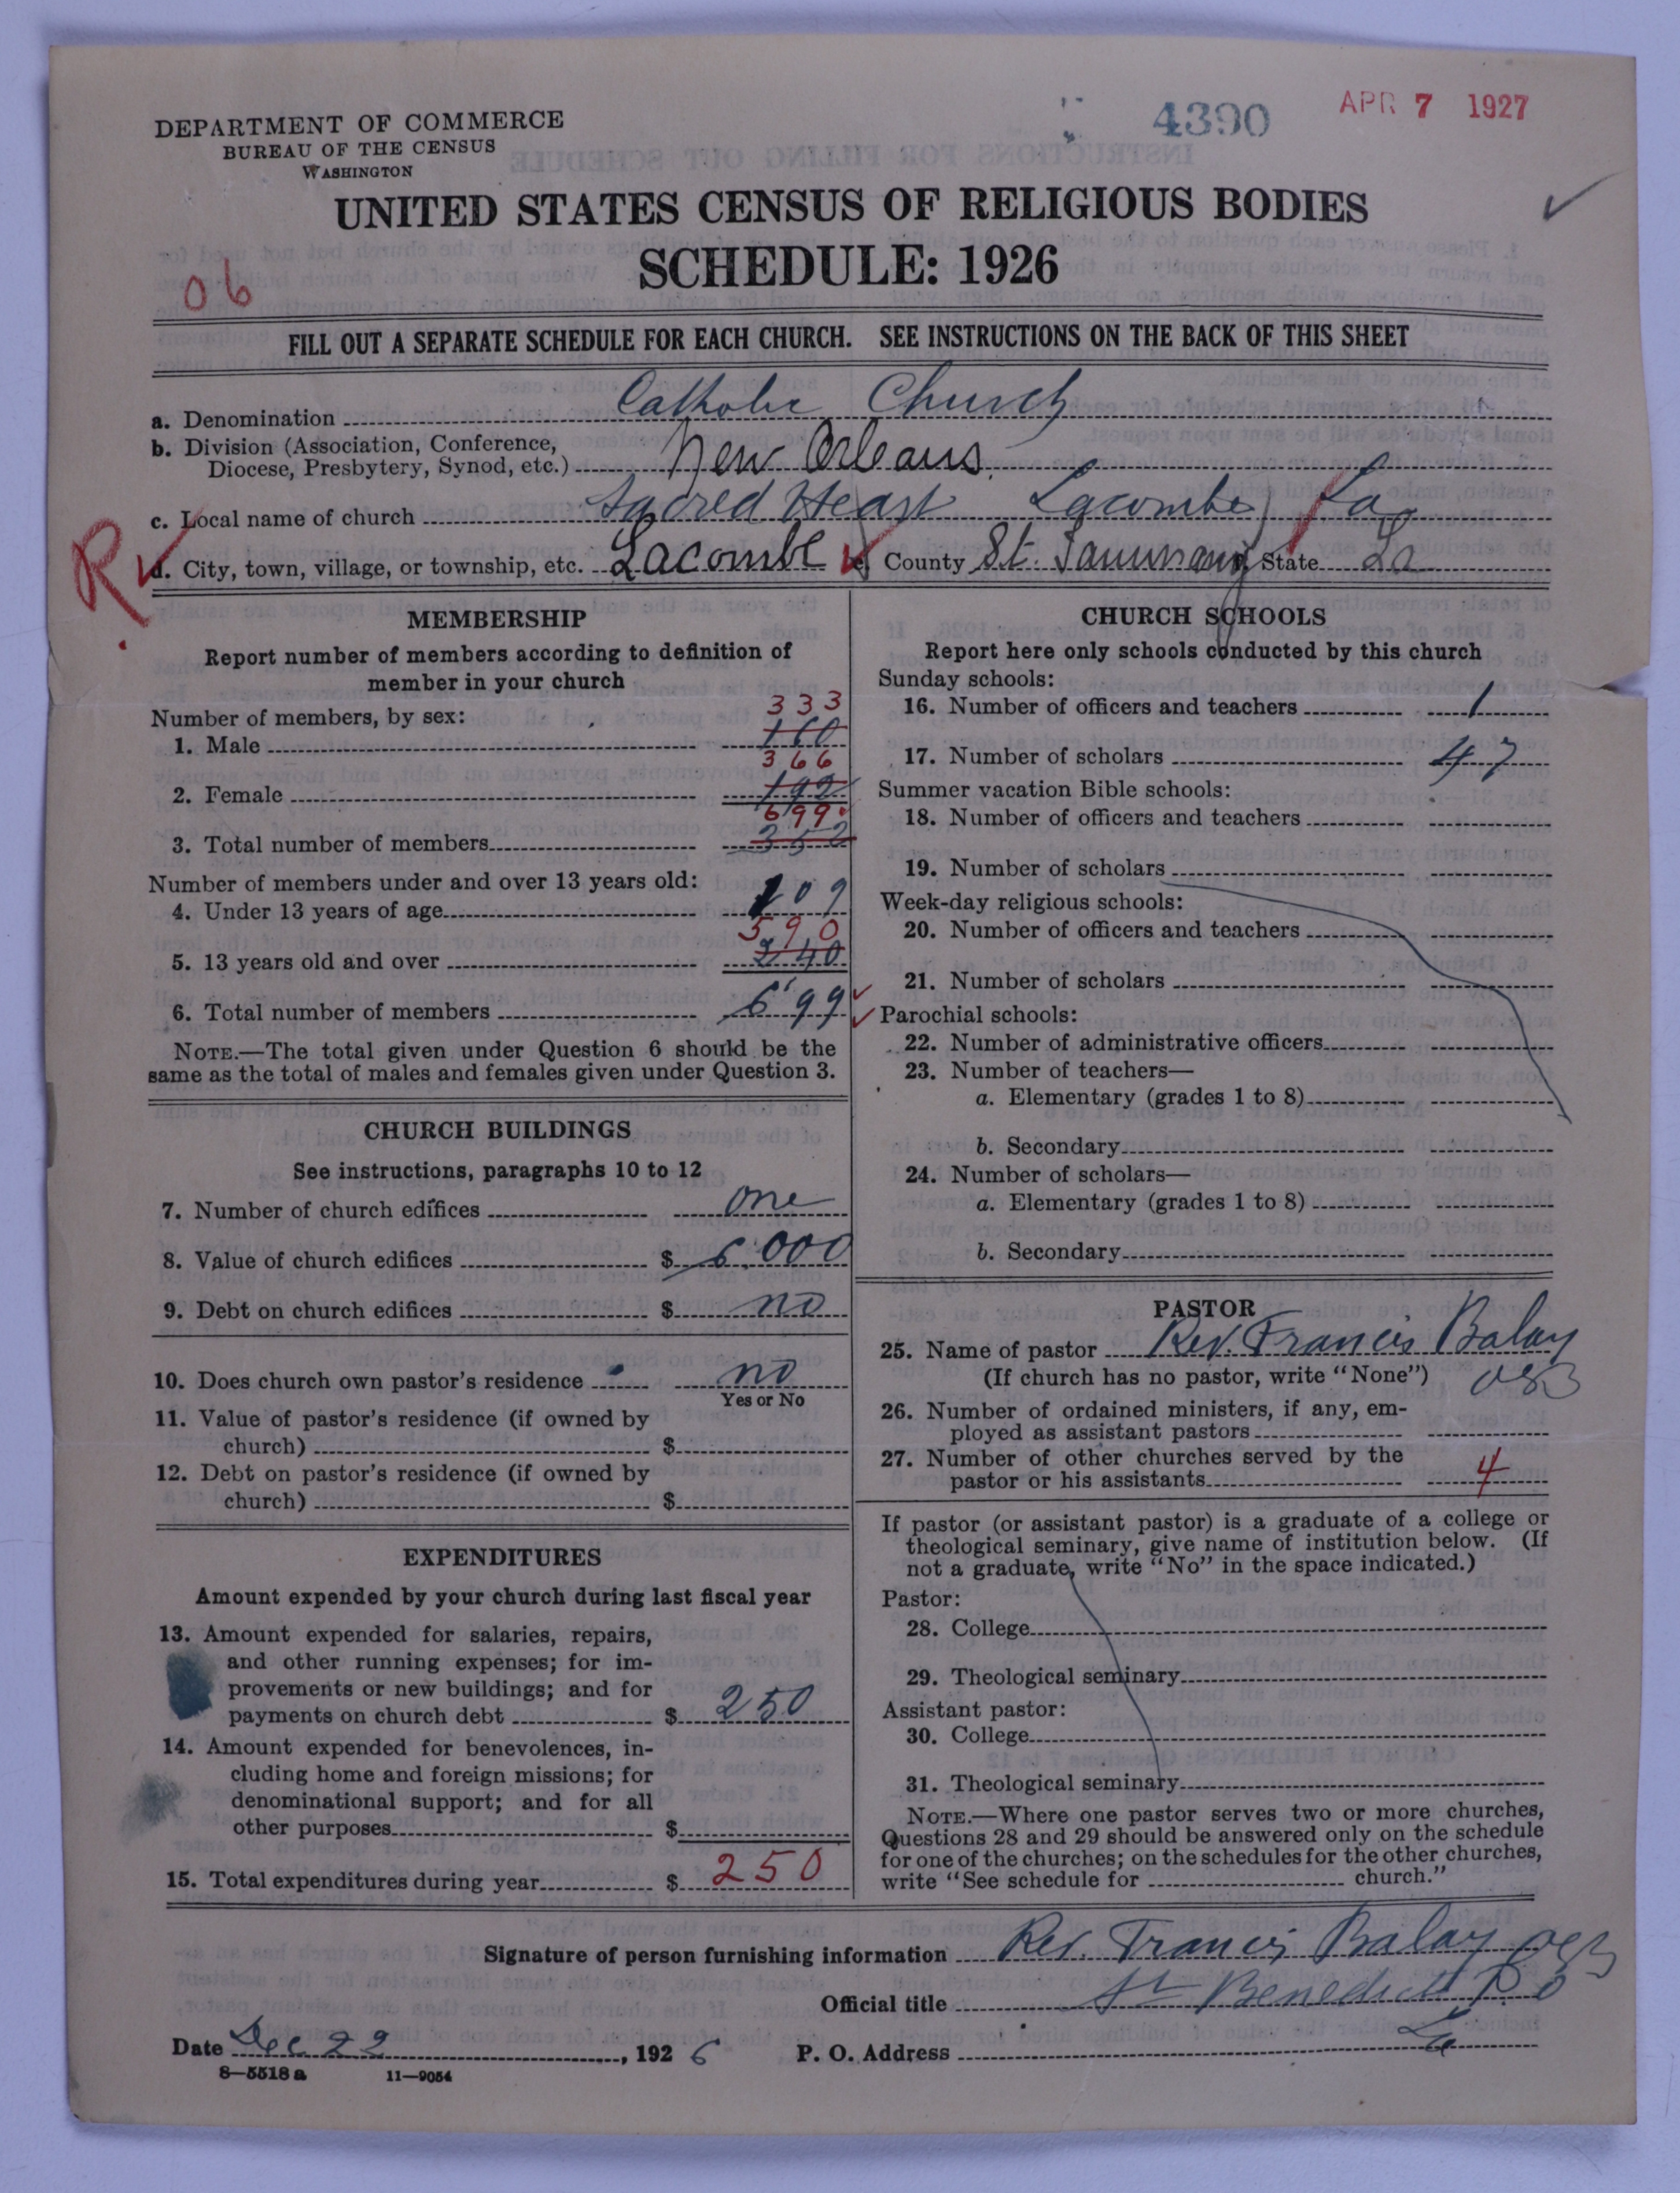 APR 7 1927
4390
DEPARTMENT OF COMMERCE
BUREAU OF THE CENSUS
WASHINGTON
UNITED STATES CENSUS OF RELIGIOUS BODIES
SCHEDULE: 1926
06
FILL OUT A SEPARATE SCHEDULE FOR EACH CHURCH. SEE INSTRUCTIONS ON THE BACK OF THIS SHEET
a. Denomination Catholic Church
b. Division (Association, Conference,
Diocese, Presbytery, Synod, etc.) New Orleans
c. Local name of church Sacred Heart Lacombe, La.
R
d. City, town, village, or township, etc. Lacombe e. County St. Tammany State La
MEMBERSHIP
Report number of members according to definition of
member in your church
Number of members, by sex:
333
1. Male 160
366
2. Female 192
699
3. Total number of members 352
Number of members under and over 13 years old:
4. Under 13 years of age 109
590
5. 13 years old and over 240
6. Total number of members 699
NOTE.—The total given under Question 6 should be the
same as the total of males and females given under Question 3.
CHURCH BUILDINGS
See instructions, paragraphs 10 to 12
7. Number of church edifices one
8. Value of church edifices $ 6,000
9. Debt on church edifices $ no
10. Does church own pastor's residence no
Yes or No
11. Value of pastor's residence (if owned by
church) $
12. Debt on pastor's residence (if owned by
church) $
EXPENDITURES
Amount expended by your church during last fiscal year
13. Amount expended for salaries, repairs,
and other running expenses; for im-
provements or new buildings; and for
payments on church debt $ 250
14. Amount expended for benevolences, in-
cluding home and foreign missions; for
denominational support; and for all
other purposes $
15. Total expenditures during year $ 250
CHURCH SCHOOLS
Report here only schools conducted by this church
Sunday schools:
16. Number of officers and teachers 1
17. Number of scholars 47
Summer vacation Bible schools:
18. Number of officers and teachers
19. Number of scholars
Week-day religious schools:
20. Number of officers and teachers
21. Number of scholars
Parochial schools:
22. Number of administrative officers
23. Number of teachers—
a. Elementary (grades 1 to 8)
b. Secondary
24. Number of scholars—
a. Elementary (grades 1 to 8)
b. Secondary
PASTOR
25. Name of pastor Rev. Francis Balay
(If church has no pastor, write "None") OSB
26. Number of ordained ministers, if any, em-
ployed as assistant pastors
27. Number of other churches served by the
pastor or his assistants 4
If pastor (or assistant pastor) is a graduate of a college or
theological seminary, give name of institution below. (If
not a graduate, write "No" in the space indicated.)
Pastor:
28. College
29. Theological seminary
Assistant pastor:
30. College
31. Theological seminary
NOTE.—Where one pastor serves two or more churches,
Questions 28 and 29 should be answered only on the schedule
for one of the churches; on the schedules for the other churches,
write "See schedule for church."
Signature of person furnishing information Rev. Francis Balay OSB
Official title St Benedict P.O
La
Date Dec 22, 1926 P. O. Address
8—5518 a 11—9054